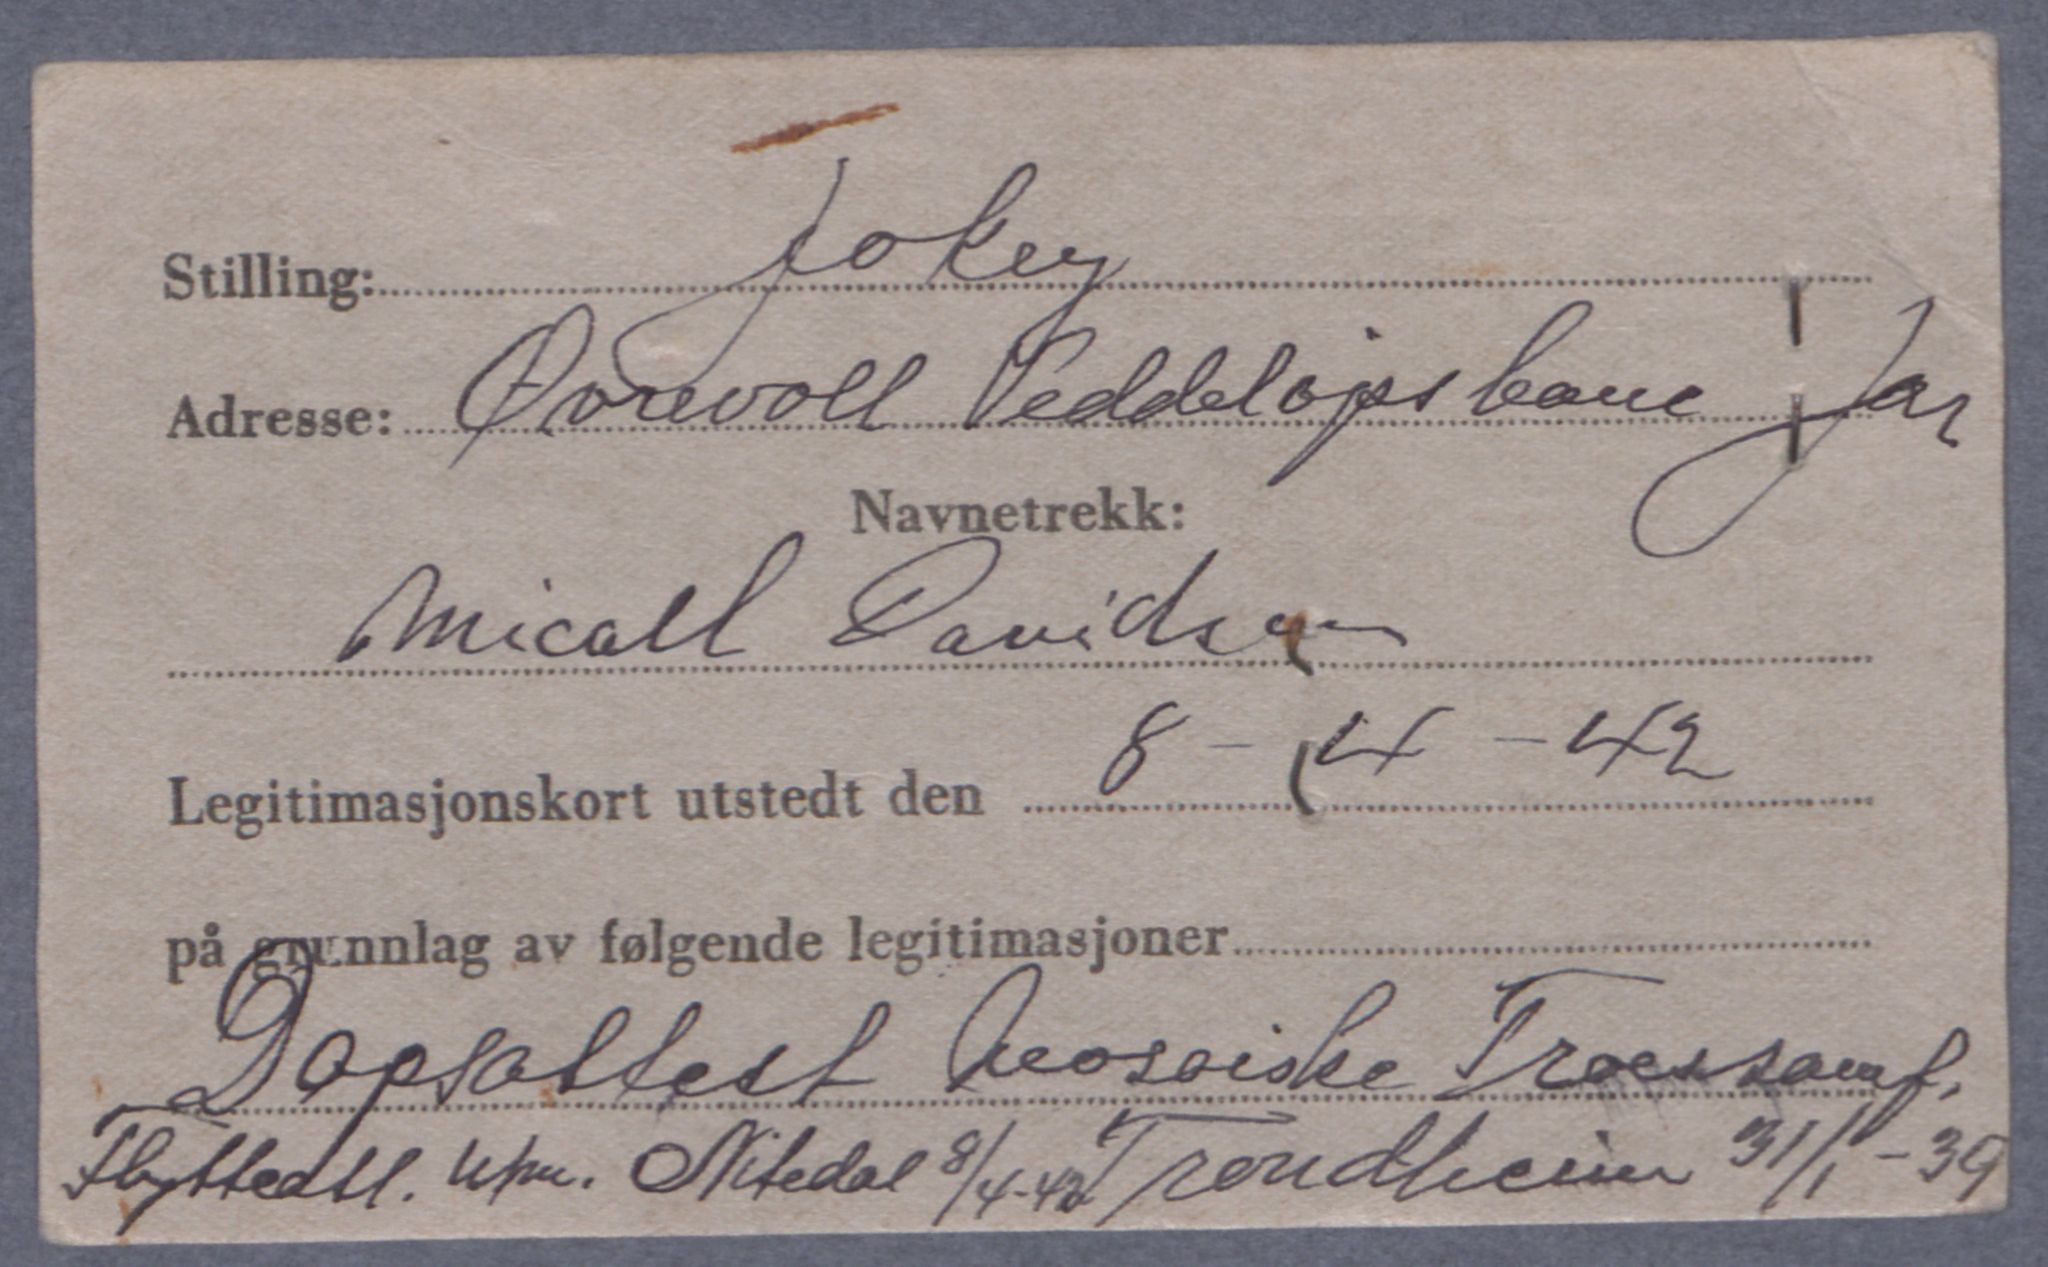 Stilling: Jokey
Adresse: Øvrevoll Veddeløpsbane Jar
Navnetrekk:
Micall Davidsen
Legitimasjonskort utstedt den 8 - 4 - 42
på grunnlag av følgende legitimasjoner
Dopsattest Mosaiske Troessamf.
Flytteatt. Nitedal 8/4-42 Trondheim 31/1-39